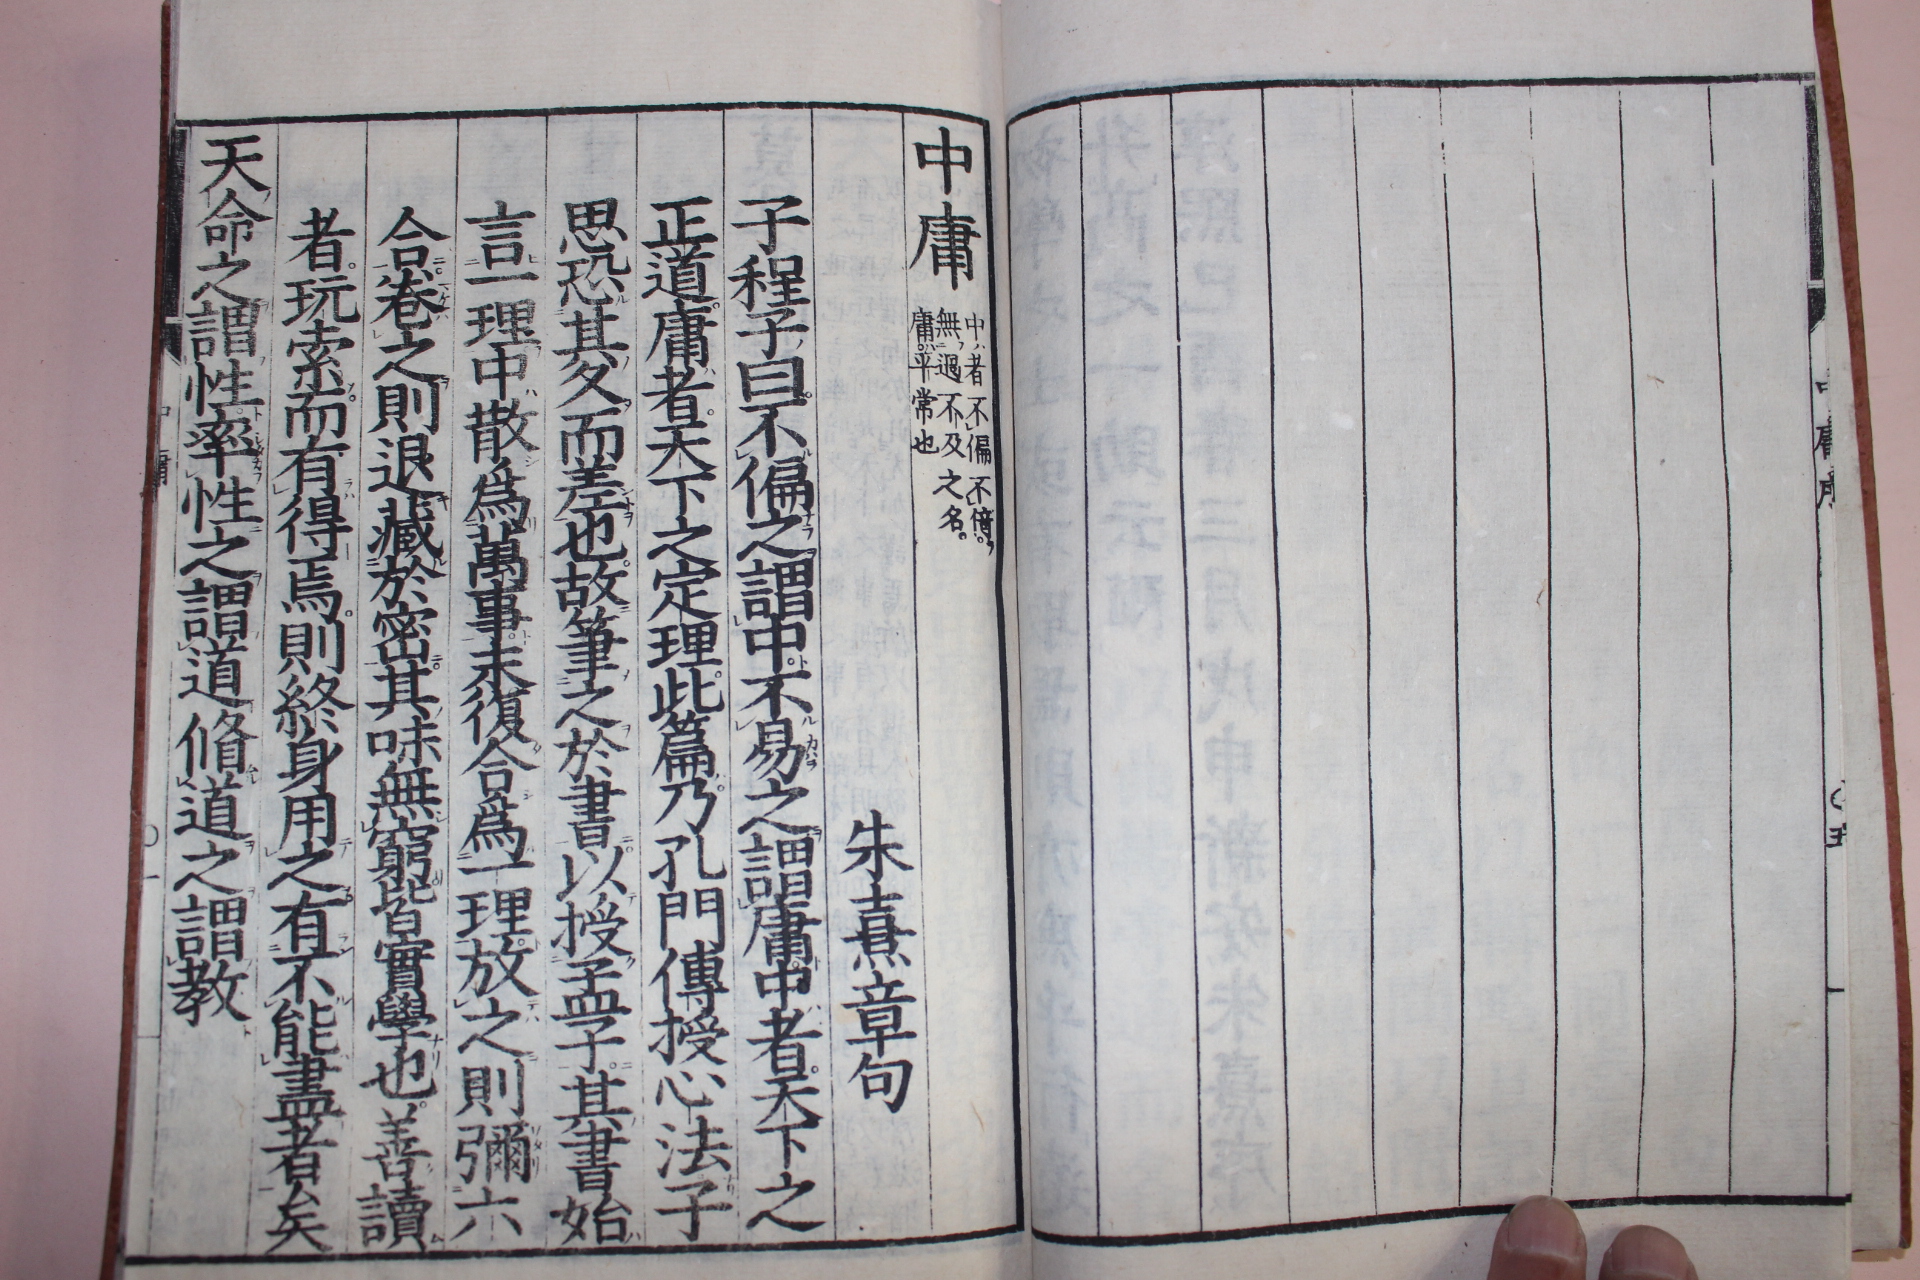 中庸序
中庸
中者不偏不倚
無過不及之名
庸平常也
朱熹章句
子程子曰不偏之謂中不易之謂庸中者天下之
正道庸者天下之定理此篇乃孔門傳授心法子
思恐其久而差也故筆之於書以授孟子其書始
言一理中散爲萬事末復合爲一理放之則彌六
合卷之則退藏於密其味無窮皆實學也善讀
者玩索而有得焉則終身用之有不能盡者矣
天命之謂性率性之謂道脩道之謂教
中庸